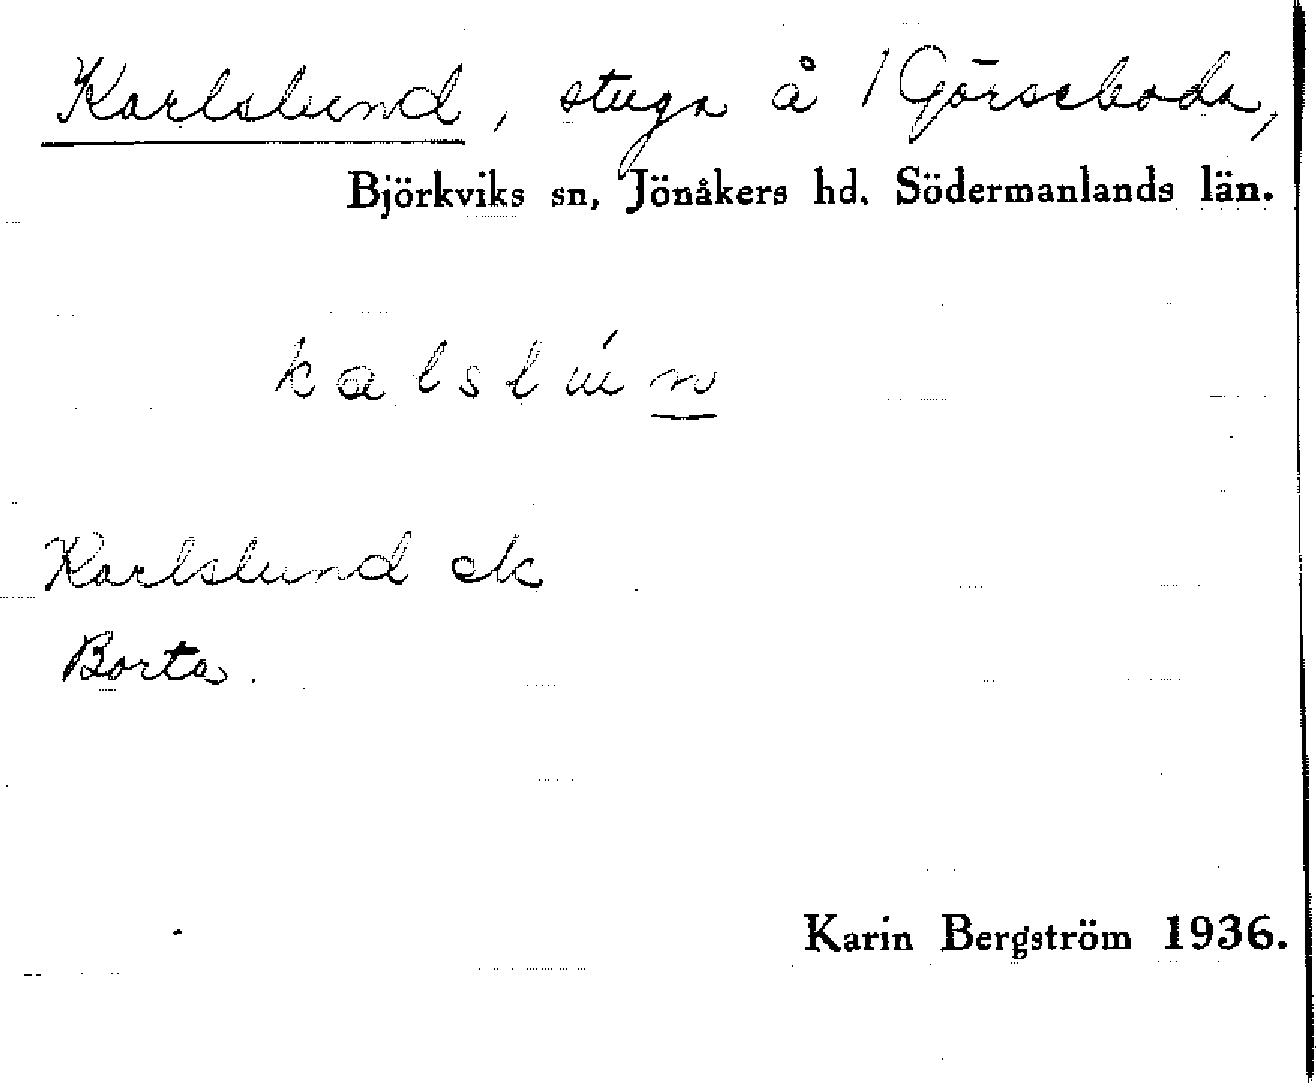 Karlslund, stuga å /Görseboda,
Björkviks sn, Jönåkers hd. Södermanlands län.
Karlslund ek
Borta.
Karin Bergström 1936.